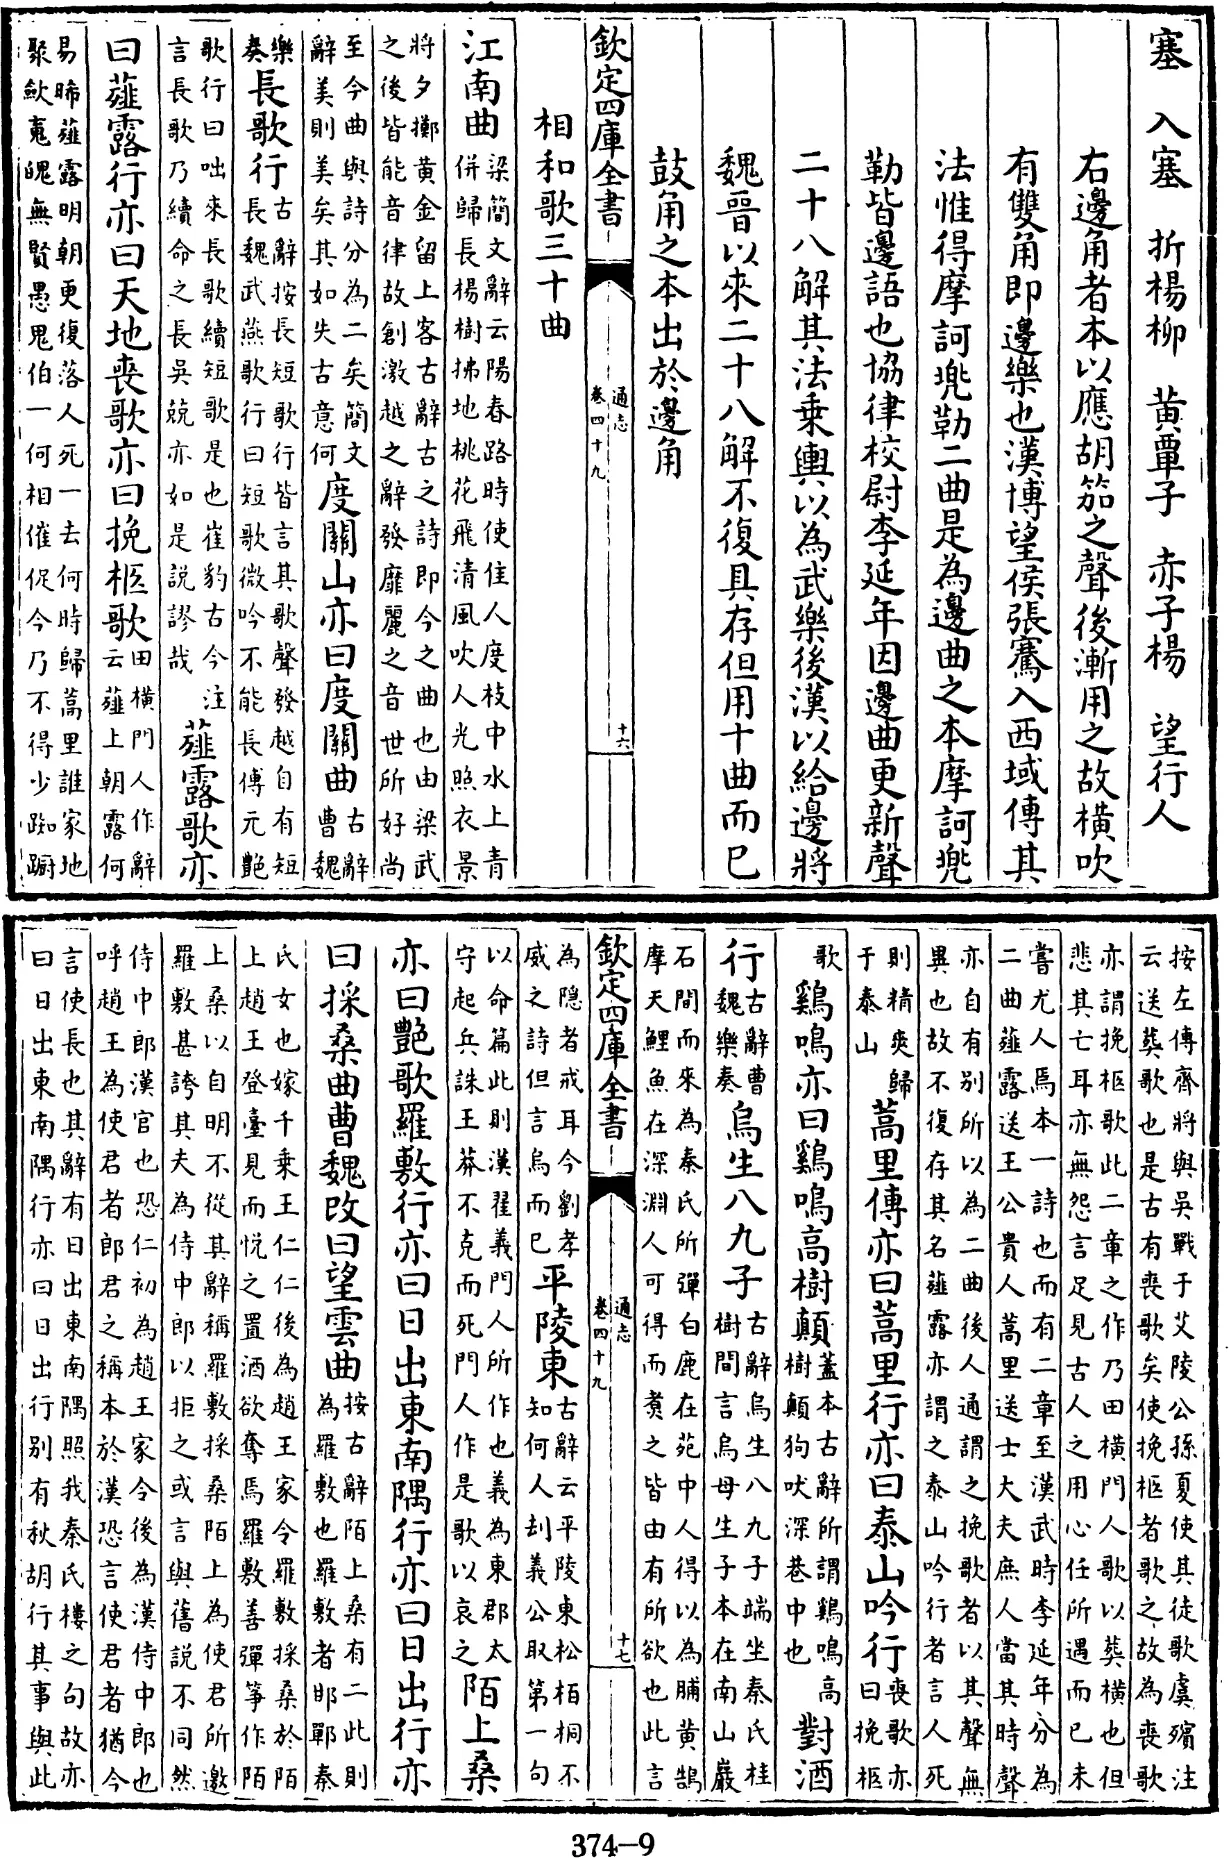 塞　入塞　折楊柳　黄覃子　赤子楊　望行人
右邊角者本以應胡笳之聲後漸用之故横吹
有雙角即邊樂也漢博望侯張騫入西域傳其
法惟得摩訶兠勒二曲是為邊曲之本摩訶兠
勒皆邊語也協律校尉李延年因邊曲更新聲
二十八解其法乗輿以為武樂後漢以給邊將
魏晉以來二十八解不復具存但用十曲而已
鼓角之本出於邊角
欽定四庫全書　通志卷四十九　十六
相和歌三十曲
江南曲梁簡文辭云陽春路時使佳人度枝中水上青併歸長楊樹拂地桃花飛清風吹人光照衣景
將夕擲黄金留上客古辭古之詩即今之曲也由梁武之後皆能音律故創激越之辭發靡麗之音世所好尚
至今曲與詩分為二矣簡文辭美則美矣其如失古意何度關山亦曰度關曲古辭曹魏
樂奏長歌行古辭按長短歌行皆言其歌聲發越自有短長魏武燕歌行曰短歌微吟不能長傅元艶
歌行曰咄來長歌續短歌是也崔豹古今注言長歌乃續命之長吳兢亦如是説謬哉薤露歌亦
曰薤露行亦曰天地喪歌亦曰挽柩歌田横門人作辭云薤上朝露何
易晞薤露明朝更復落人死一去何時歸蒿里誰家地聚斂䰟魄無賢愚鬼伯一何相催促今乃不得少踟蹰
按左傳齊將與吳戰于艾陵公孫夏使其徒歌虞殯注云送葬歌也是古有喪歌矣使挽柩者歌之故為喪歌
亦謂挽柩歌此二章之作乃田横門人歌以葬横也但悲其亡耳亦無怨言足見古人之用心任所遇而已未
嘗尤人焉本一詩也而有二章至漢武時李延年分為二曲薤露送王公貴人蒿里送士大夫庶人當其時聲
亦自有别所以為二曲後人通謂之挽歌者以其聲無異也故不復存其名薤露亦謂之泰山吟行者言人死
則精爽歸于泰山蒿里傳亦曰蒿里行亦曰泰山吟行喪歌亦曰挽柩
歌鷄鳴亦曰鷄鳴高樹顛蓋本古辭所謂鷄鳴高樹顛狗吠深巷中也對酒
行古辭曹魏樂奏烏生八九子古辭烏生八九子端坐秦氏桂樹間言烏母生子本在南山巖
石間而來為秦氏所彈白鹿在苑中人得以為脯黄鵠摩天鯉魚在深淵人可得而煑之皆由有所欲也此言
欽定四庫全書　通志卷四十九　十七
為隱者戒耳今劉孝威之詩但言烏而已平陵東古辭云平陵東松柏桐不知何人刦義公取第一句
以命篇此則漢翟義門人所作也義為東郡太守起兵誅王莽不克而死門人作是歌以哀之陌上桑
亦曰艶歌羅敷行亦曰日出東南隅行亦曰日出行亦
曰採桑曲曹魏改曰望雲曲按古辭陌上桑有二此則為羅敷也羅敷者邯鄲秦
氏女也嫁千乗王仁仁後為趙王家令羅敷採桑於陌上趙王登臺見而悦之置酒欲奪焉羅敷善彈筝作陌
上桑以自明不從其辭稱羅敷採桑陌上為使君所邀羅敷甚誇其夫為侍中郎以拒之或言與舊説不同然
侍中郎漢官也恐仁初為趙王家令後為漢侍中郎也呼趙王為使君者郎君之稱本於漢恐言使君者猶今
言使長也其辭有日出東南隅照我秦氏樓之句故亦曰日出東南隅行亦曰日出行别有秋胡行其事與此
374-9